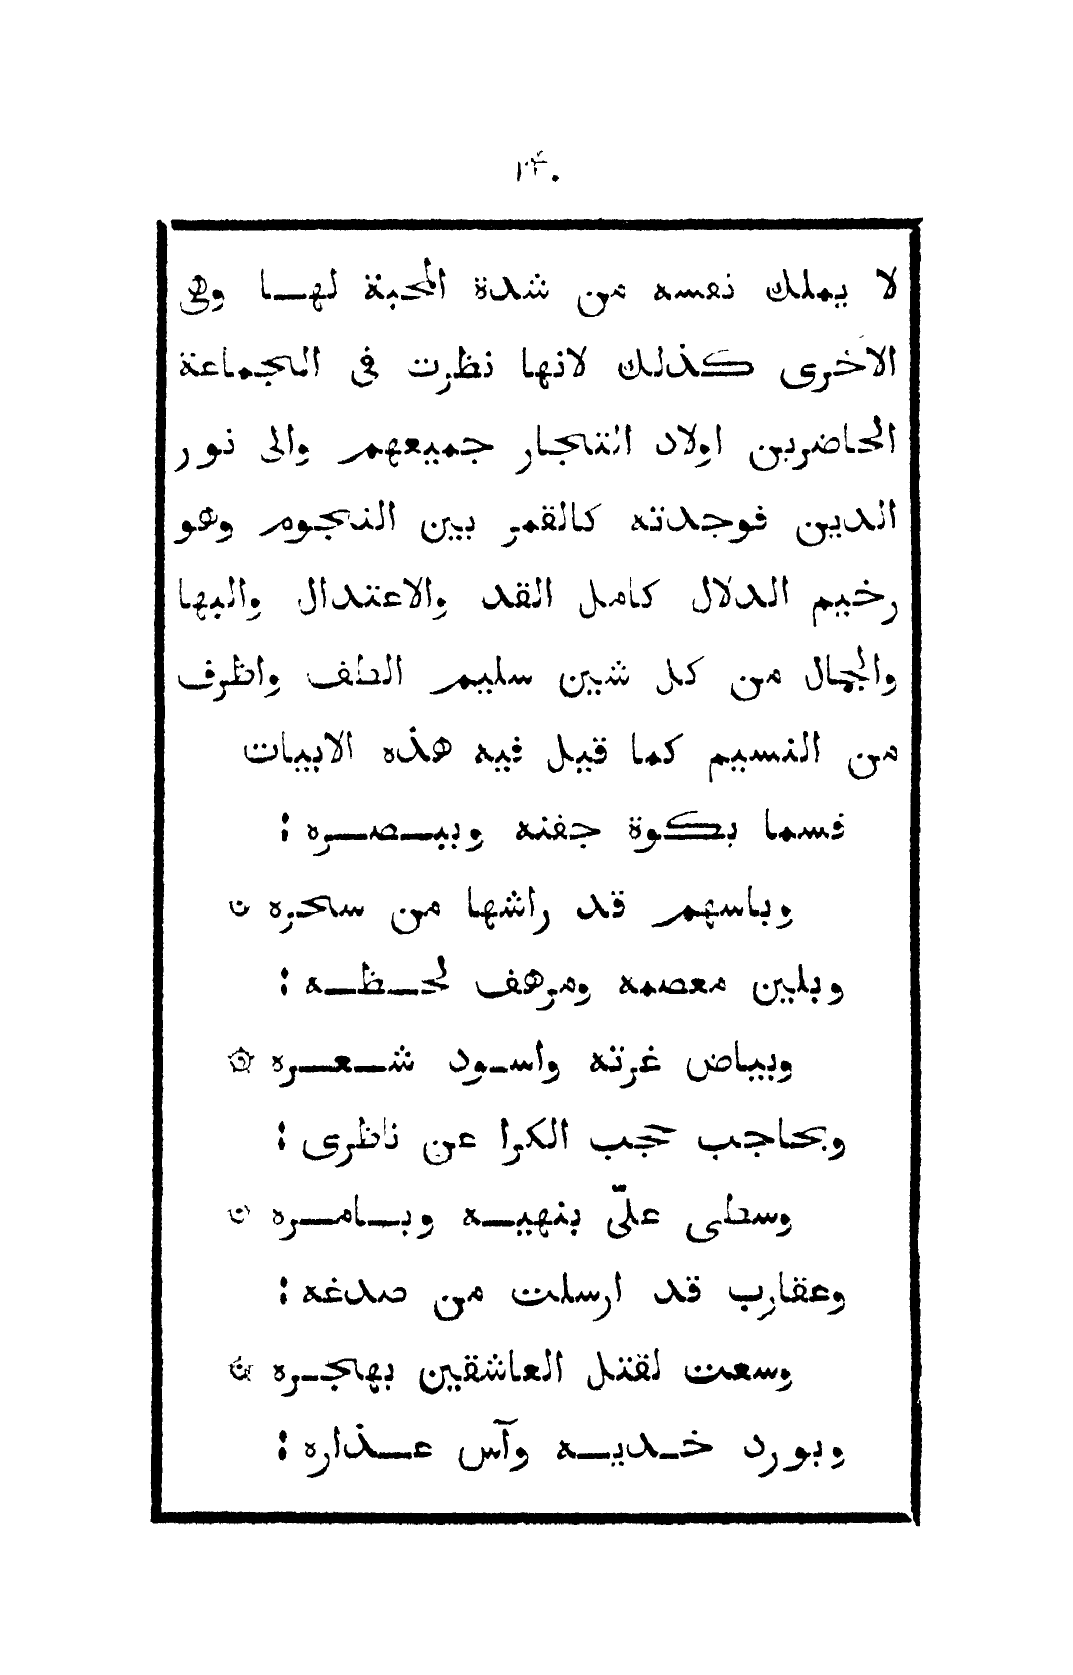 ١٣٠
لا يملك نفسه من شدة المحبة لهـا وهى
الاخرى كذلك لانها نظرت فى الجماعة
الحاضرين اولاد التجار جميعهم والى نور
الدين فوجدته كالقمر بين النجوم وهو
رخيم الدلال كامل القد والاعتدال والبها
والجمال من كل شين سليم الطف واظرف
من النسيم كما قيل فيه هذه الابيات
قسما بكوة جفنه وبيـصـره ؛
وباسهم قد راشها من سحره
وبلين معصمه ومرهف لحـظـه ؛
وبياض غرته واسـود شـعـره
وبحاجب حجب الكرا عن ناظرى ؛
وسطى علىّ بنهيـه وبـامـره
وعقارب قد ارسلت من صدغه ؛
وسعت لقتل العاشقين بهجـره
وبورد خـديـه وآس عـذاره ؛